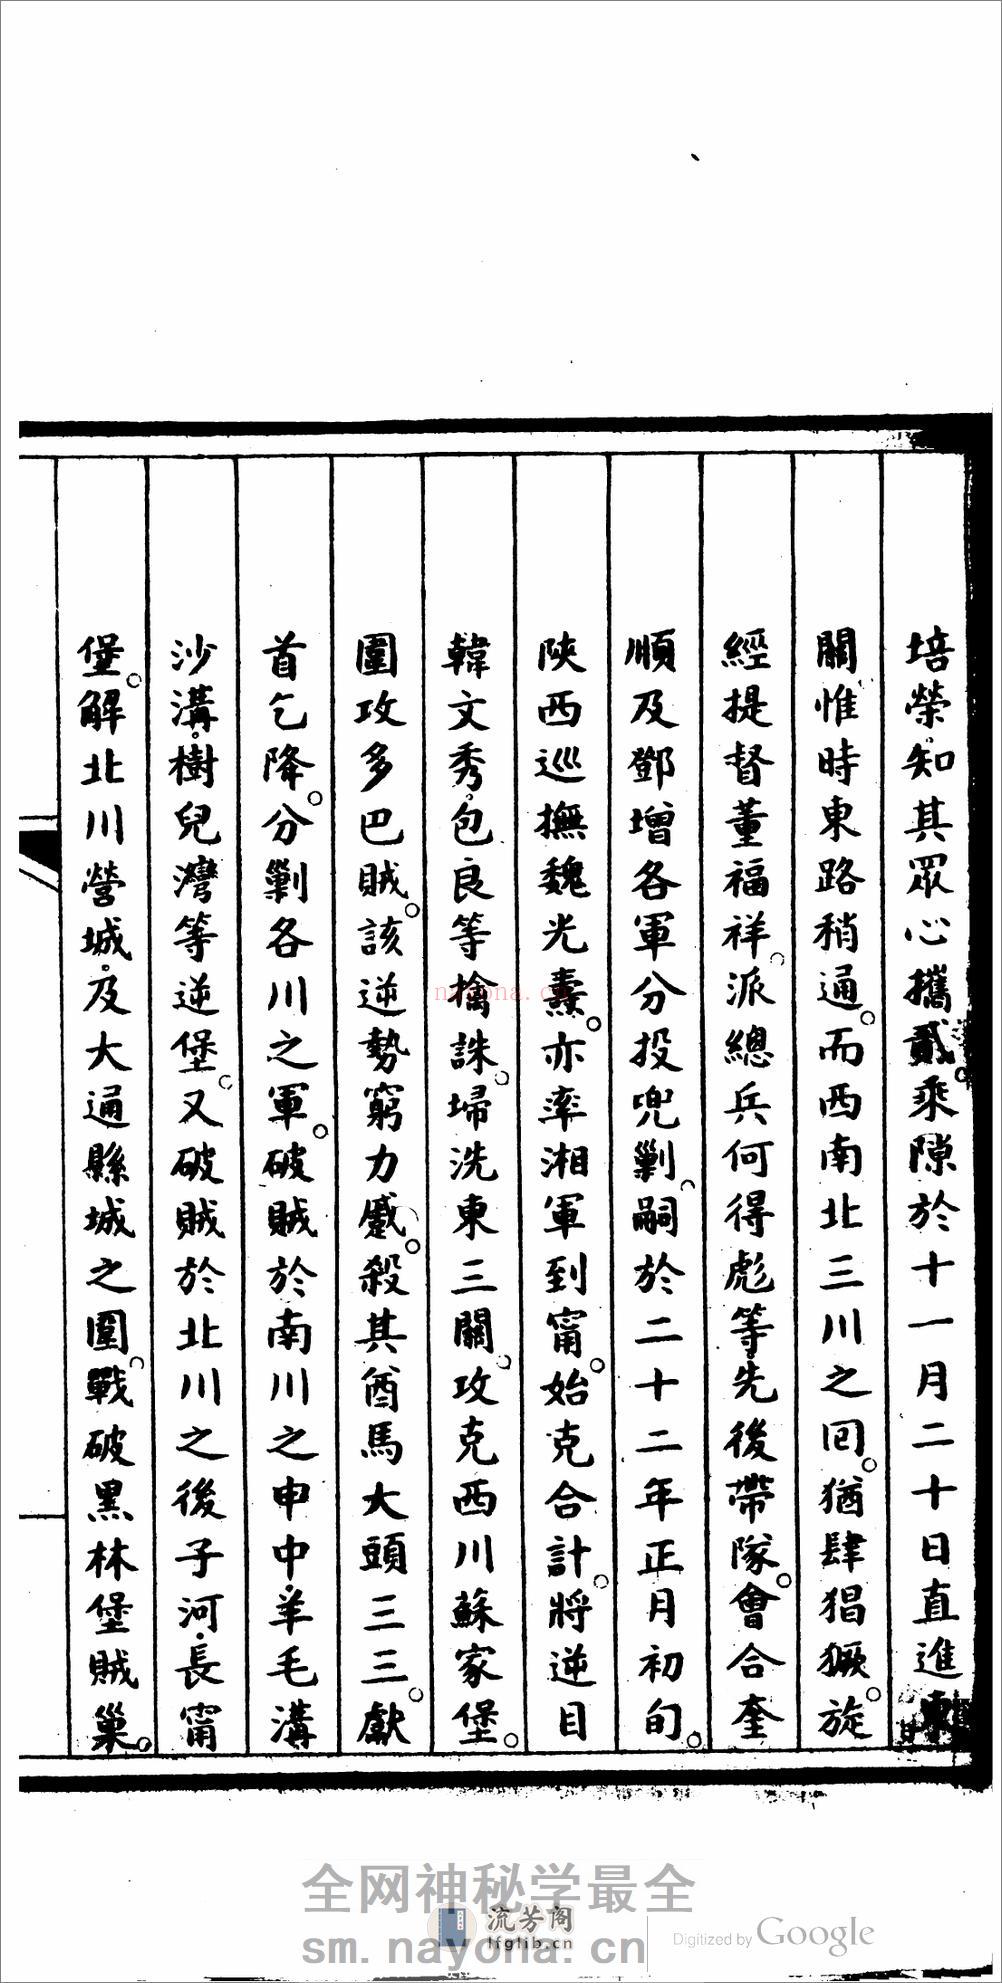 培榮知其眾心攜貳乘隙於十一月二十日直進東
關惟時東路稍通而西南北三川之回猶肆猖獗旋
經提督董福祥派總兵何得彪等先後帶隊會合奎
順及鄧增各軍分投兜剿嗣於二十二年正月初旬
陝西巡撫魏光燾亦率湘軍到甯始克合計將逆目
韓文秀包良等擒誅埽洗東三關攻克西川蘇家堡
圍攻多巴賊該逆勢窮力蹙殺其酋馬大頭三三獻
首乞降分剿各川之軍破賊於南川之申中羊毛溝
沙溝樹兒灣等逆堡又破賊於北川之後子河長甯
堡解北川營城及大通縣城之圍戰破黑林堡賊巢
nayona.cn
全网神秘学最全
流芳阁
lfglib.cn
sm.nayona.cn
Digitized by Google